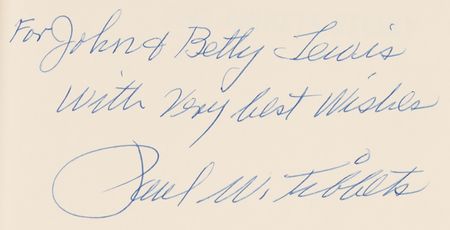 For John & Betty Lewis
With Very best Wishes
Paul W. Tibbets